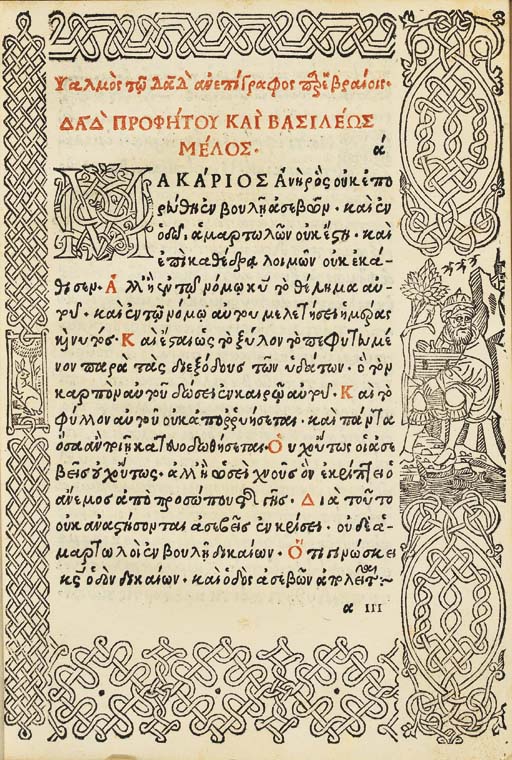 Ψαλμὸς τῷ Δαδ ἀνεπίγραφος παρ' ἑβραίοις.
ΔΑΔ ΠΡΟΦΗΤΟΥ ΚΑΙ ΒΑΣΙΛΕΩΣ
ΜΕΛΟΣ. ά
ΜΑΚΑΡΙΟΣ Ἀνὴρ ὃς οὐκ ἐπο
ρεύθη ἐν βουλῇ ἀσεβῶν. καὶ ἐν
ὁδῷ ἁμαρτωλῶν οὐκ ἔστη. καὶ
ἐπὶ καθέδρᾳ λοιμῶν οὐκ ἐκά-
θισεν. Ἀλλ' ἢ ἐν τῷ νόμῳ κυ τὸ θέλημα αὐ-
τοῦ. καὶ ἐν τῷ νόμῳ αὐτοῦ μελετήσει ἡμέρας
καὶ νυκτός. Καὶ ἔσται ὡς τὸ ξύλον τὸ πεφυτευμέ
νον παρὰ τὰς διεξόδους τῶν ὑδάτων. ὃ τὸν
καρπὸν αὐτοῦ δώσει ἐν καιρῷ αὐτοῦ. Καὶ τὸ
φύλλον αὐτοῦ οὐκ ἀπορρυήσεται. καὶ πάντα
ὅσα ἂν ποιῇ κατευοδωθήσεται. Οὐχ οὕτως οἱ ἀσε
βεῖς οὐχ οὕτως. ἀλλ' ἢ ὡσεὶ χνοῦς ὃν ἐκρίπτει ὁ
ἄνεμος ἀπὸ προσώπου τῆς γῆς. Διὰ τοῦτο
οὐκ ἀναστήσονται ἀσεβεῖς ἐν κρίσει. οὐδὲ ἁ-
μαρτωλοὶ ἐν βουλῇ δικαίων. Ὅτι γινώσκει
κς ὁδὸν δικαίων. καὶ ὁδὸς ἀσεβῶν ἀπολεῖται
α III